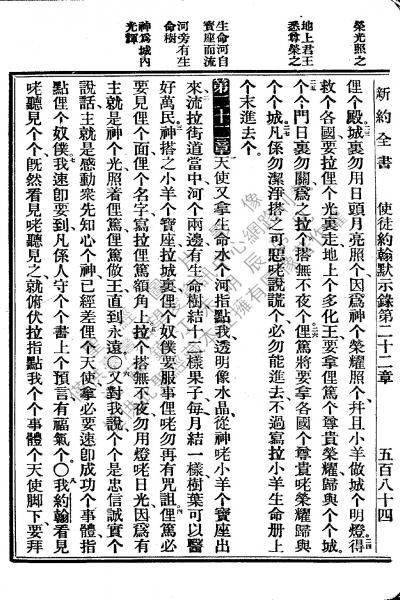 新約全書　使徒約翰默示錄第二十二章　五百八十四
榮光照之
地上君王
悉尊榮之
生命河自
寶座而流
河旁有生
命樹
神爲城內
光輝
俚个殿、城裏勿用日頭月亮照个、因爲神个榮耀照个、幷且小羊做城个明燈、得
救个各國要拉俚个光裏走、地上个多化王要拿俚篤个尊貴榮耀歸與个个城
个个門日裏勿關、爲之拉个搭無不夜个、俚篤將要拿各國个尊貴咾榮耀歸與
个个城、凡係勿潔淨、搭之可惡咾說謊个、必勿能進去、不過寫拉小羊生命册上
个末進去个、
第二十二章 天使又拿生命水个河指點我、透明像水晶、從神咾小羊个寶座出
來、流拉街道當中、河个兩邊有生命樹、結十二樣果子、每月結一樣、樹葉可以醫
好萬民、神搭之小羊个寶座拉城裏、俚个奴僕要服事俚咾勿再有咒詛、俚篤必
要見俚个面、俚个名字寫拉俚篤額角上、拉个搭無不夜、勿用燈咾日光、因爲有
主就是神个光照着俚篤、俚篤做王直到永遠○又對我說、个个是忠信誠實个
說話、主就是感動衆先知心个神、已經差俚个天使、拿必要速卽成功个事體、指
點俚个奴僕、我速卽要到、凡係人守个个書上个預言有福氣个○我約翰看見
咾聽見个个、旣然看見咾聽見之、就俯伏拉指點我个个事體个天使脚下、要拜